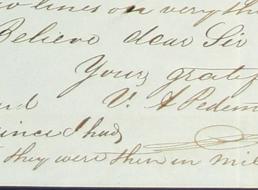 two lines on very th
Believe dear Sir
Yours gratef
V. A Pedem
since I had
they were then in mil